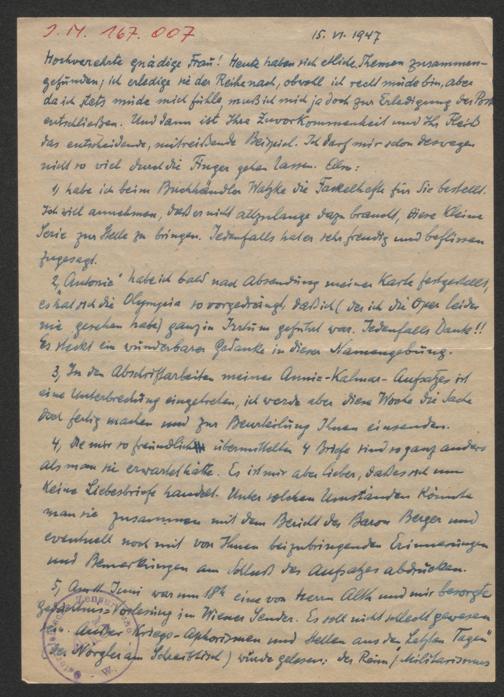 J.N. 167.007
15. VI. 1947
Hochverehrte gnädige Frau! Heute haben sich etliche Themen zusammen-
gefunden; ich erledige sie der Reihe nach, obwohl ich recht müde bin, aber
da ich stets müde mich fühle, muß ich mich ja doch zur Erledigung der Post
entschließen. Und dann ist Ihre Zuvorkommenheit und Ihr Fleiß
das entscheidende, mitreißende Beispiel. Ich darf mir schon deswegen
nicht so viel durch die Finger gehen lassen. Also:
1, habe ich beim Buchhändler Watzke die Fackelhefte für Sie bestellt.
Ich will annehmen, daß er nicht allzulange dazu braucht, diese kleine
Serie zur Stelle zu bringen. Jedenfalls hat er sehr freudig und beflissen
zugesagt.
2, "Antonie" habe ich bald nach Absendung meiner Karte festgestellt,
es hat sich die Olympia so vorgedrängt, daß ich (der ich die Oper leider
nie gesehen habe) ganz in Irrtum geführt war. Jedenfalls Dank!!
Es steckt ein wunderbarer Gedanke in dieser Namengebung.
3, In den Abschriftarbeiten meines Annie-Kalmar-Aufsatzes ist
eine Unterbrechung eingetreten, ich werde aber diese Woche die Sache
doch fertig machen und zur Beurteilung Ihnen einsenden.
4, Die mir so freundlich übermittelten 4 Briefe sind so ganz anders
als man sie erwartet hätte. Es ist mir aber lieber, daß es sich um
keine Liebesbriefe handelt. Unter solchen Umständen könnte
man sie zusammen mit dem Bericht des Baron Berger und
eventuell noch mit von Ihnen beizubringenden Erinnerungen
und Bemerkungen am Schluß des Aufsatzes abdrucken.
5, Am 11. Juni war um 18h eine von Herrn Alth und mir besorgte
Gedächtnis-Vorlesung im Wiener Sender. Es soll nicht schlecht gewesen
sein. Außer Kriegs-Aphorismen und Stellen aus den "Letzten Tagen"
(Der Nörgler am Schreibtisch) wurde gelesen: der Reim, Militarismus